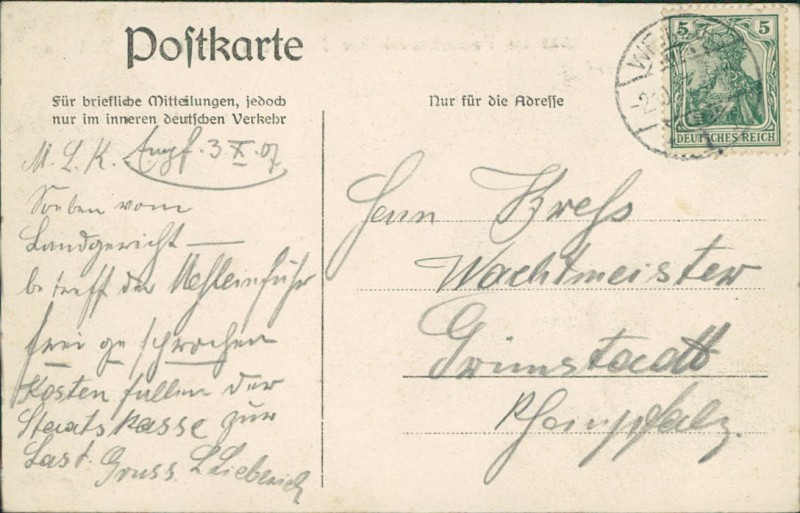 Postkarte
Für briefliche Mitteilungen, jedoch
nur im inneren deutschen Verkehr
Nur für die Adresse
5 5
DEUTSCHES REICH
M. L. K. Empf. 3 X. 07
Soeben vom
Landgericht —
betreff der Mehleinfuhr
frei gesprochen
Kosten fallen der
Staatskasse zur
Last. Gruss. L Lieberich
Herrn Kress
Wachtmeister
Grünstadt
Rheinpfalz.